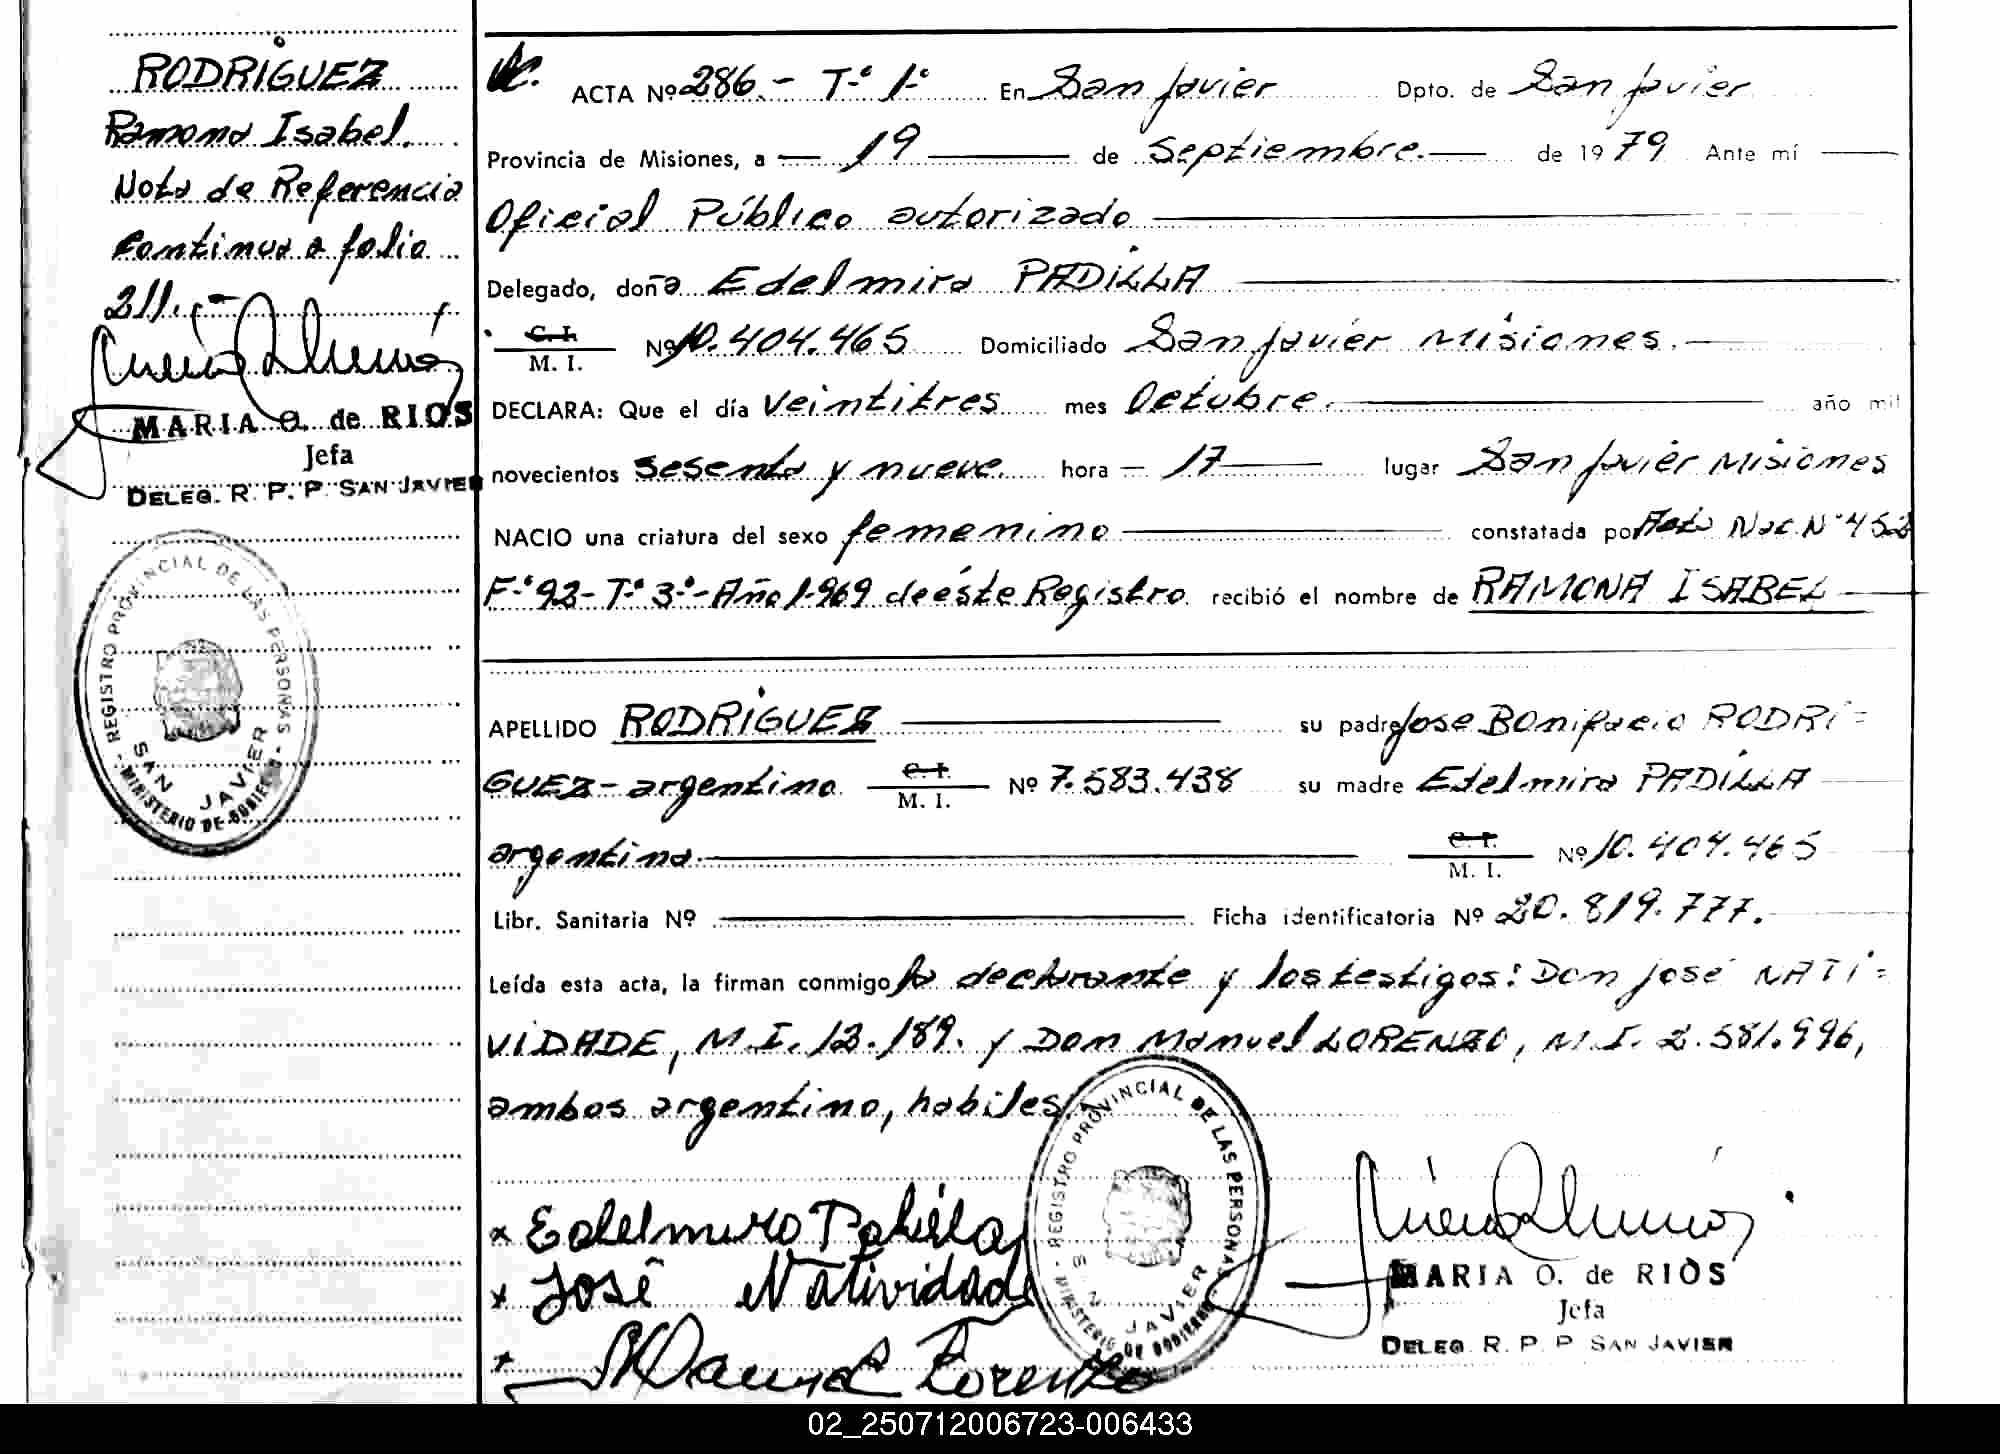 RODRIGUEZ
Ramona Isabel.
Nota de Referencia
continua a folio
211.-
MARIA O. de RIOS
Jefa
DELEG. R. P. P. SAN JAVIER
REGISTRO PROVINCIAL DE LAS PERSONAS
SAN JAVIER
MINISTERIO DE GOBIERNO
ACTA Nº 286.- Tº 1º En San Javier Dpto. de San Javier
Provincia de Misiones, a — 19 — de Septiembre.— de 19 79 Ante mí —
Oficial Público autorizado —
Delegado, doña Edelmira PADILLA —
C. I.
M. I. Nº 10.404.465 Domiciliado San Javier Misiones.—
DECLARA: Que el día veintitres mes Octubre.— año mil
novecientos sesenta y nueve. hora — 17 — lugar San Javier Misiones
NACIO una criatura del sexo femenino — constatada por Acta Nac. Nº 452
Fº 92- Tº 3º- Año 1.969 de éste Registro. recibió el nombre de RAMONA ISABEL —
APELLIDO RODRIGUEZ — su padre Jose Bonifacio RODRI=
GUEZ- argentino. C. I. M. I. Nº 7.583.438 su madre Edelmira PADILLA —
argentina.— C. I. M. I. Nº 10.404.465
Libr. Sanitaria Nº — Ficha identificatoria Nº 20.819.777.
Leída esta acta, la firman conmigo la declarante y los testigos: Don José NATI=
VIDADE, M.I. 12.189. y Don Manuel LORENZO, M.I. 2.581.996,
ambos argentino, habiles.
x Edelmira Padilla
x José Natividade
x Manuel Lorenzo
REGISTRO PROVINCIAL DE LAS PERSONAS
SAN JAVIER
MINISTERIO DE GOBIERNO
MARIA O. de RIOS
Jefa
DELEG. R. P. P. SAN JAVIER
02_250712006723-006433